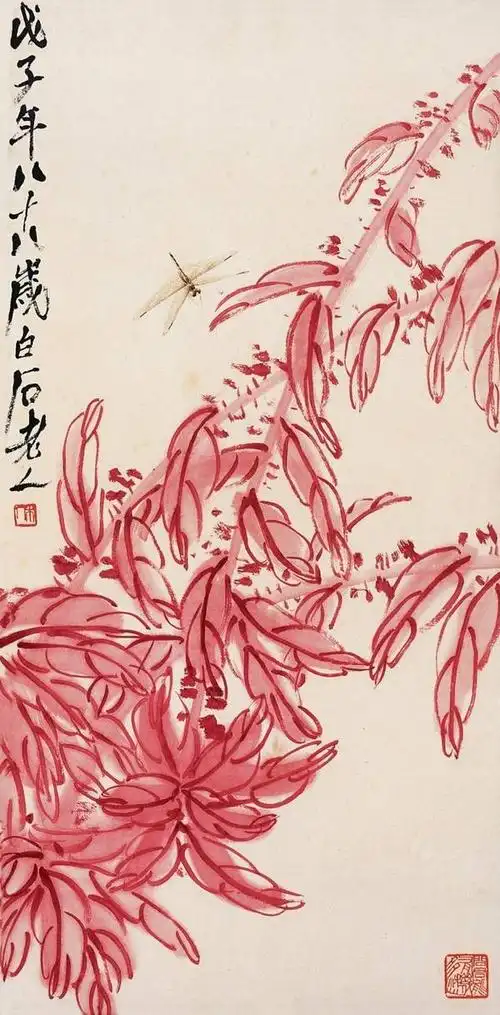 戊子年八十八歲白石老人